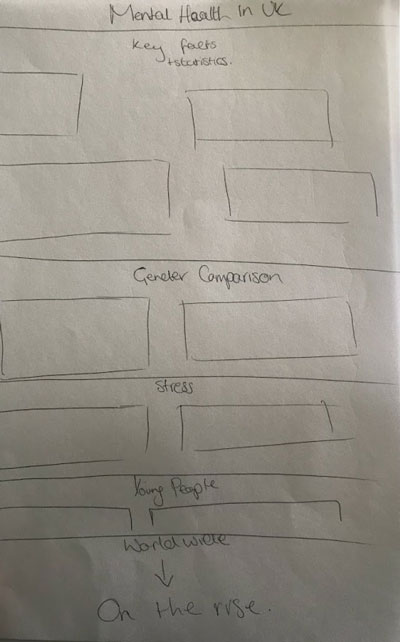 Mental Health in UK
Key facts
+statistics.
Gender Comparison
Stress
Young People
Worldwide
On the rise.